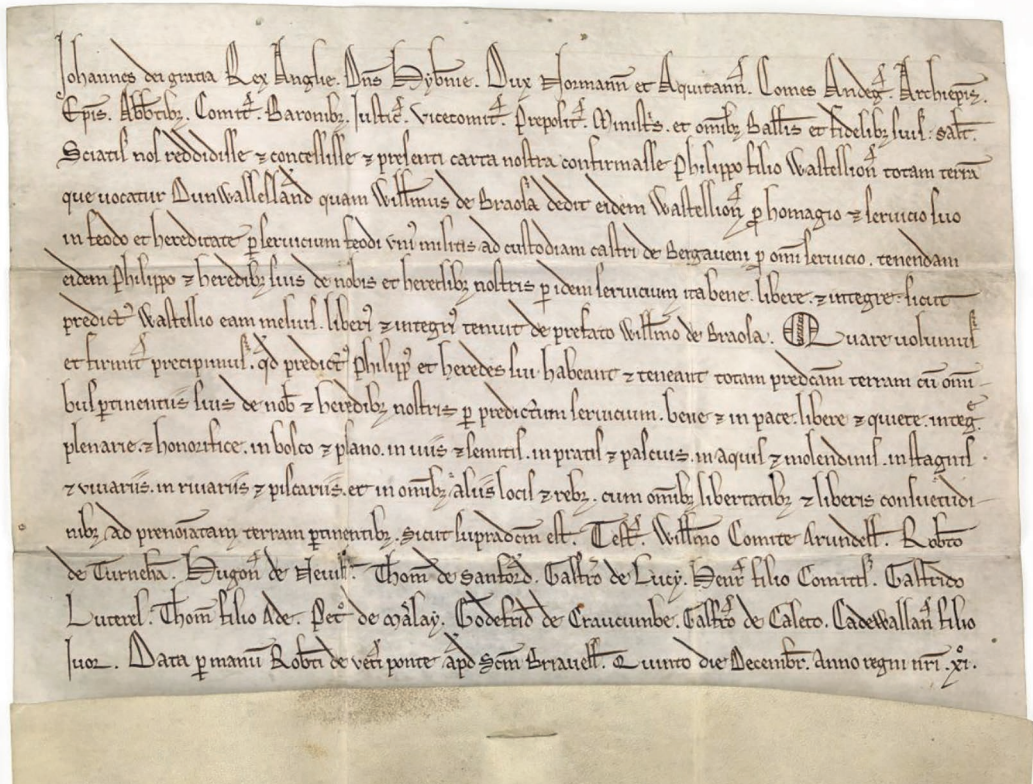 Johannes dei gratia Rex Anglie. Dn̄s Hyb̄nie. Dux Normann̄ et Aquitann̄. Comes Andeḡ. Archiep̄is.
Ep̄is. Abb̄tibȝ. Comit̄. Baronibȝ. Justic̄. vicecomit̄. Prepositis̄. Minist̄s. et om̄ibȝ Ball̄is et fidelibȝ suis. sal̄t.
Sciatis nos reddidisse ⁊ concessisse ⁊ presenti carta nostra confirmasse Philippo filio Wastellion̄ totam terrā
que uocatur Dunwallesland quam Will̄mus de Braosa dedit eidem Wastellion̄ ꝑ homagio ⁊ seruicio suo
in feodo et hereditate ꝑ seruicium feodi uni᷒ militis ad custodiam castri de Bergaueni ꝑ om̄i seruicio. tenendam
eidem Philippo ⁊ heredibȝ suis de nobis et heredibȝ nostris ꝑ idem seruicium ita bene. libere. ⁊ integre. sicut
predict᷒ Wastellio eam melius. liberi᷒ ⁊ integri᷒ tenuit de prefato Will̄mo de Braosa. Quare uolumus
et firmit̄ precipimus. qd̄ predict᷒ Philipp᷒ et heredes sui habeant ⁊ teneant totam predc̄am terram cū omi-
bus ꝑtinentiis suis de nob̄ ⁊ heredibȝ nostris ꝑ predictum seruicium. bene ⁊ in pace. libere ⁊ quiete. intege.
plenarie. ⁊ honorifice. in bosco ⁊ plano. in uiis ⁊ semitis. in pratis ⁊ pascuis. in aquis ⁊ molendinis. in stagnis
⁊ viuariis. in riuariis ⁊ piscariis. et in om̄ibȝ aliis locis ⁊ rebȝ. cum om̄ibȝ libertatibȝ ⁊ liberis consuetudi-
nibȝ ad prenoīatam terram ꝑtinentibȝ. Sicut supradc̄m est. Test̄. Will̄mo Comite Arundell̄. Rob̄to
de Turneh̄a. Hugon̄ de Neuill̄. Thom̄ de Sanford. Galfr̄o de Lucy. Henr̄ filio Comitis. Galfrido
Luterel. Thom̄ filio Ade. Pet̄o de Malay. Godefrid̄ de Craucumbe. Galfr̄o de Caleto. Cadewallan̄ filio
Juor. Data ꝑ manū Rob̄ti de vet̄i ponte ap̄d Sc̄m Briauell̄. Quinto die Decembr̄. Anno regni nr̄i .xi̊.